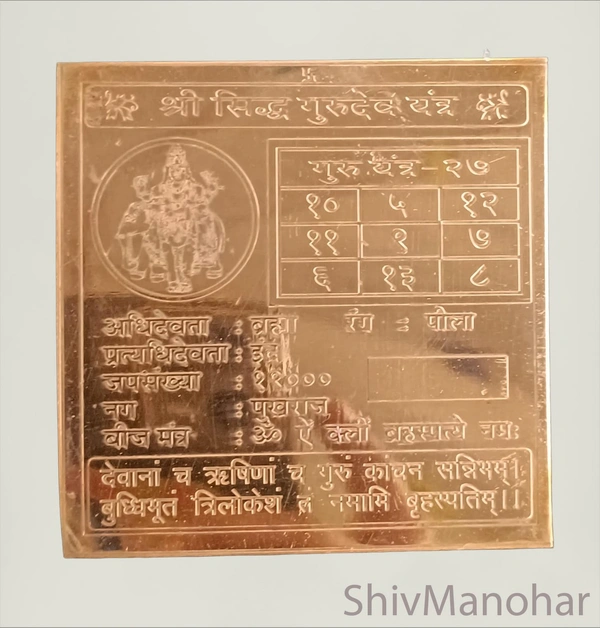 श्री सिद्ध गुरुदेव यंत्र
गुरु यंत्र - २७
१० ५ १२
११ ९ ७
६ १३ ८
अधिदेवता : ब्रह्मा रंग : पीला
प्रत्यधिदेवता :
जपसंख्या : १९०००
नग : पुखराज
बीज मंत्र : ॐ ऐं क्लीं ब्रहस्पत्ये नमः
देवानां च ऋषिणां च गुरुं कांचन सन्निभम्।
बुध्धिभूतं त्रिलोकेशं तं नमामि बृहस्पतिम्।।
ShivManohar